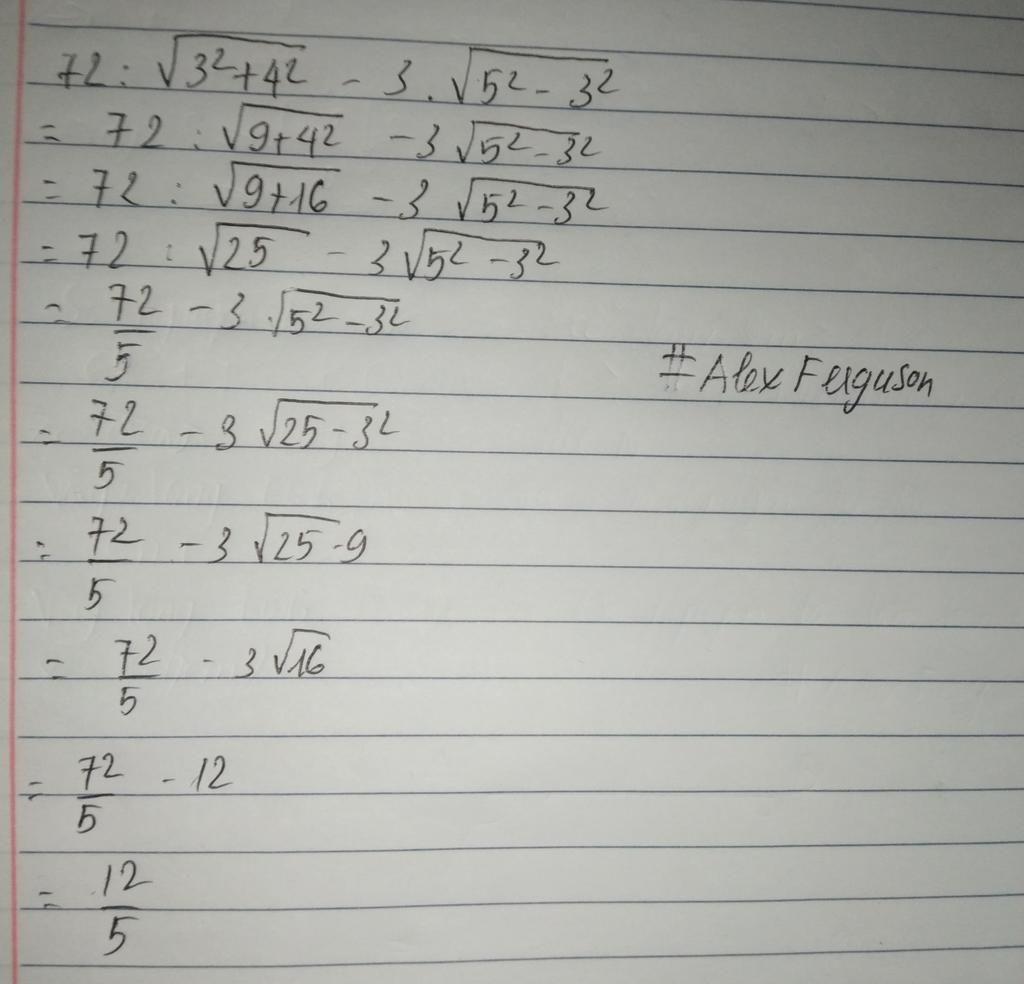 72 : √(3² + 4²) - 3 . √(5² - 3²)
= 72 : √(9+4²) - 3 √(5² - 3²)
= 72 : √(9+16) - 3 √(5² - 3²)
= 72 : √25 - 3 √(5² - 3²)
= 72/5 - 3 . √(5² - 3²)
#Alex Ferguson
= 72/5 - 3 √(25 - 3²)
= 72/5 - 3 √(25 - 9)
= 72/5 - 3 √16
= 72/5 - 12
= 12/5